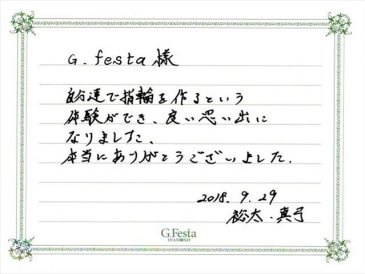 G.festa様
自分達で指輪を作るという
体験ができ、良い思い出に
なりました。
本当にありがとうございました。
2018.9.29
裕太・真弓
G.Festa
DIAMOND